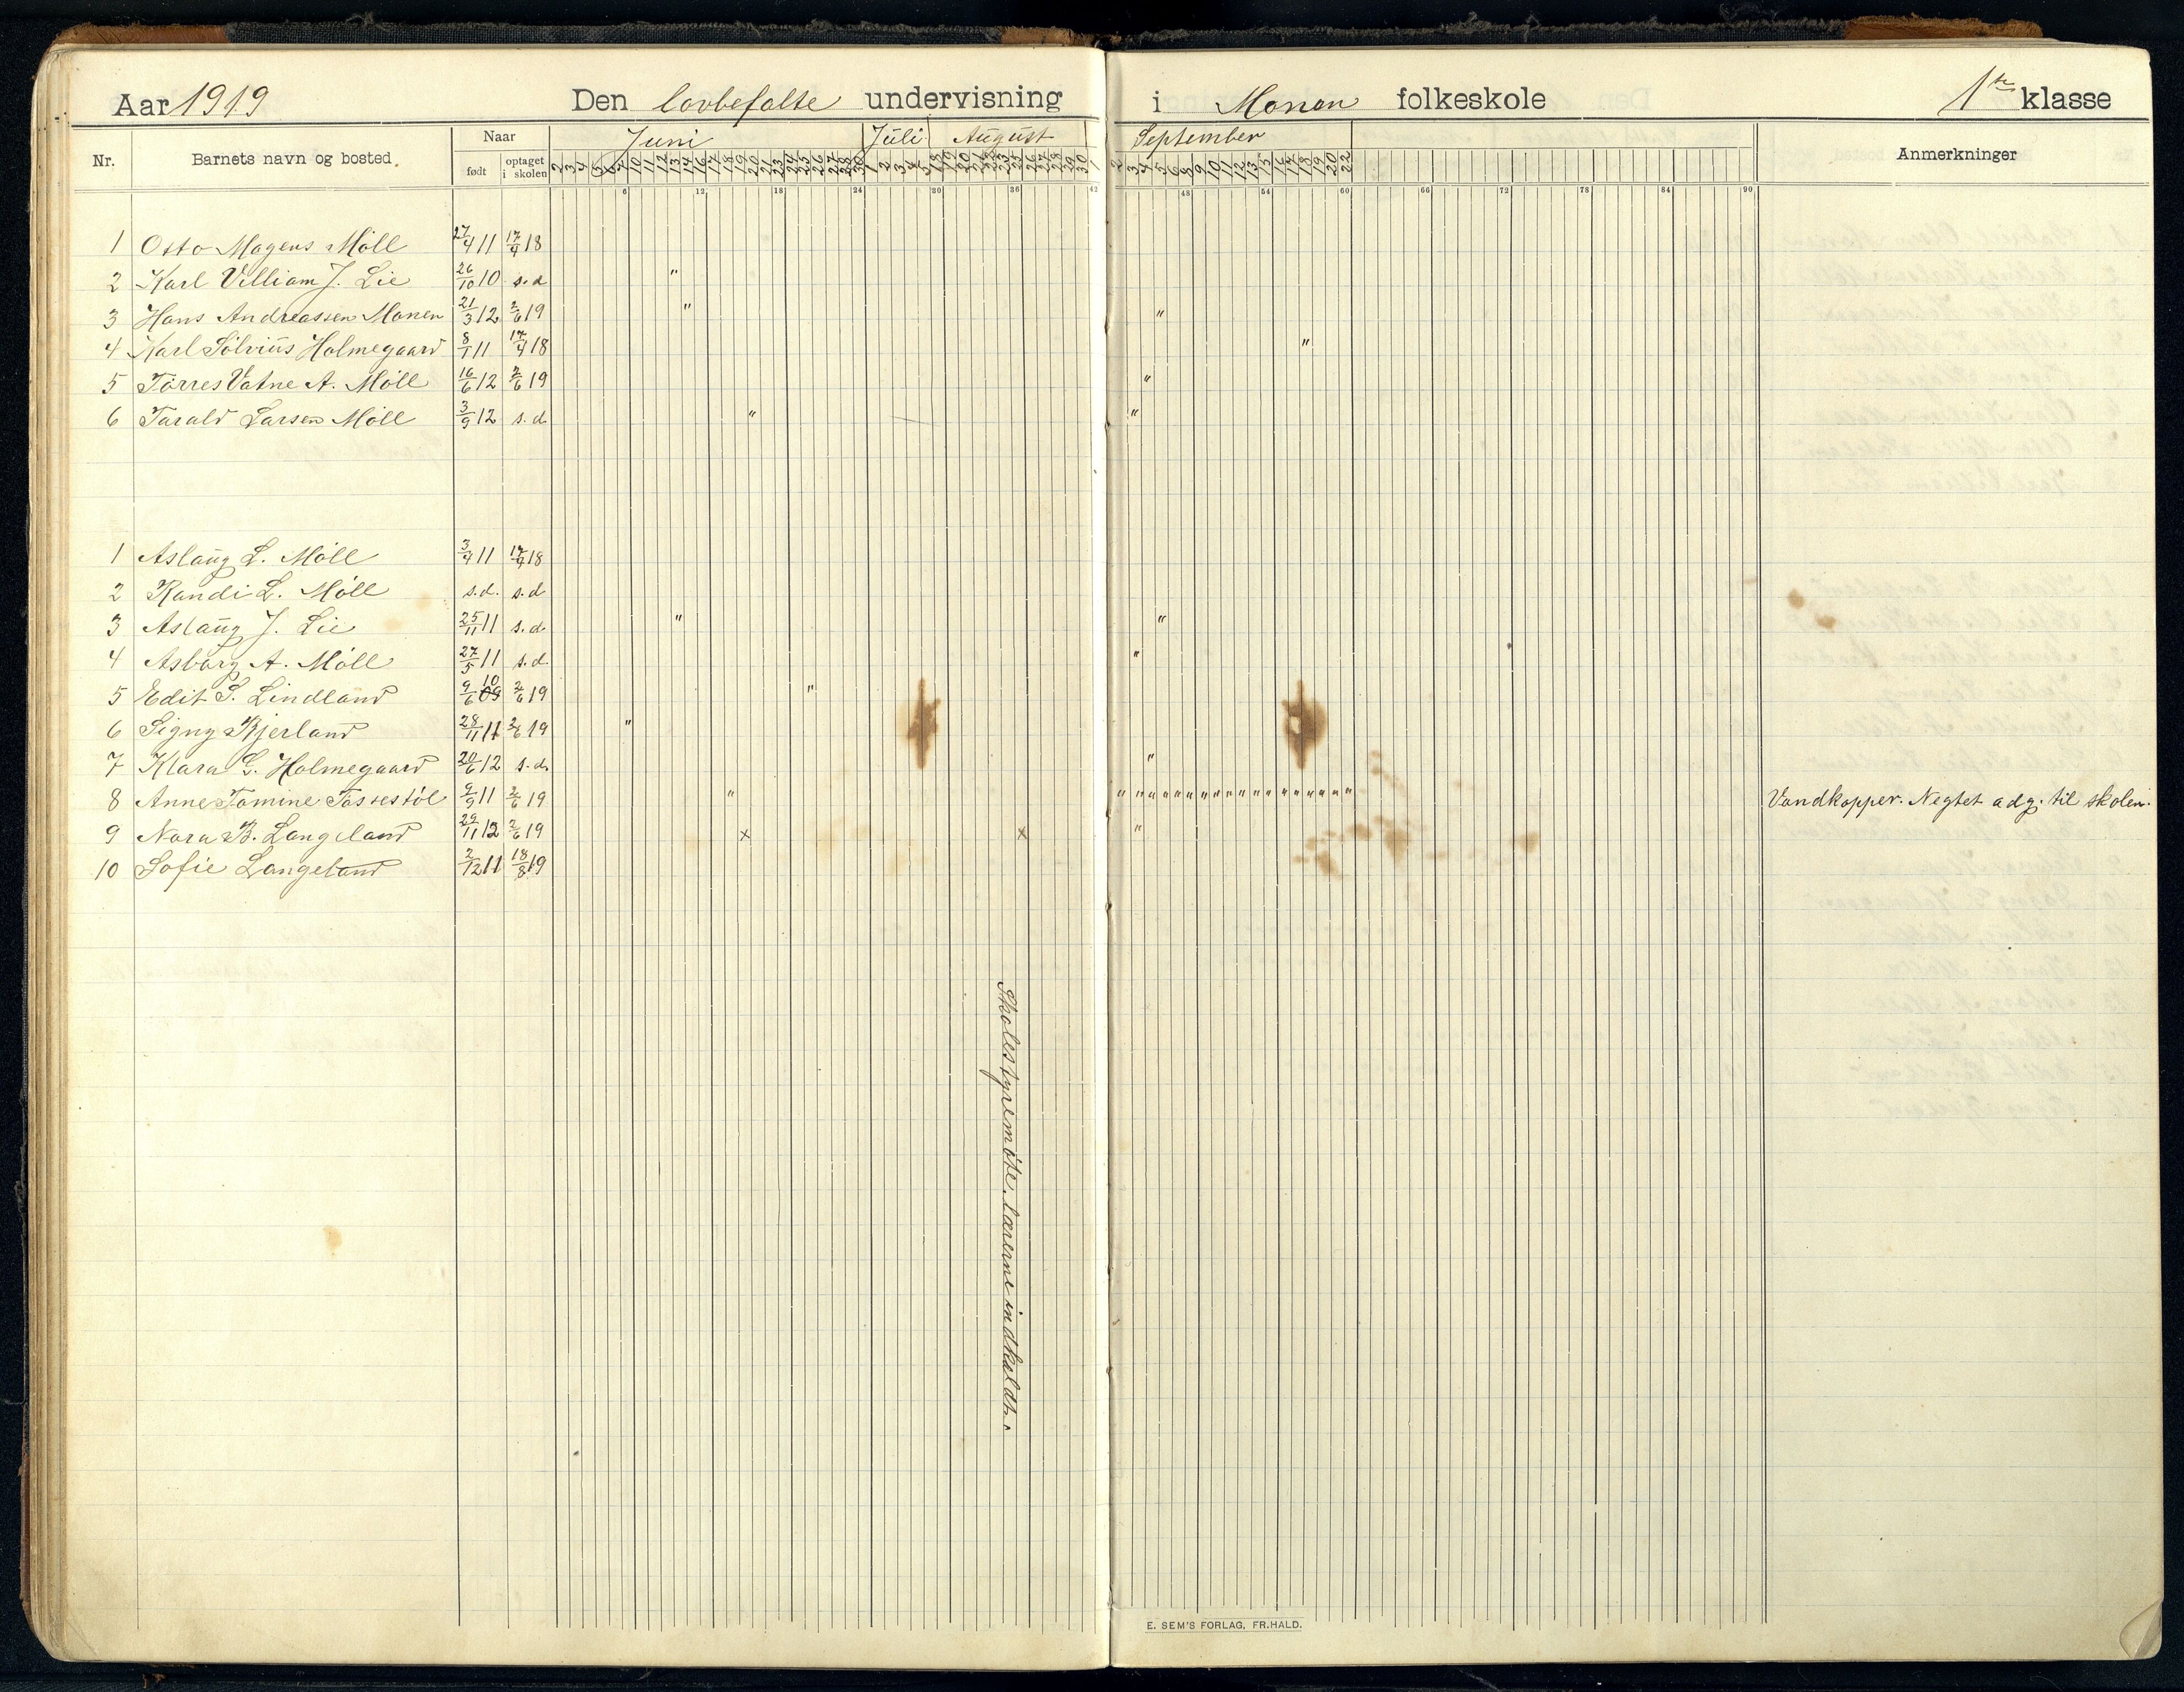 Aar 1919 Den lovbefalte undervisning i Monan folkeskole 1ste klasse
Nr. Barnets navn og bosted. Naar født optaget i skolen Juni Juli August September Anmerkninger
2 3 4 5 6 7 10 11 12 13 14 16 17 18 19 20 21 23 24 25 26 27 28 30 1 2 3 4 5 18 19 20 21 22 23 25 26 27 28 29 30 1 2 3 4 5 6 8 9 10 11 12 13 15 16 17 18 19 20 22
6 12 18 24 30 36 42 48 54 60 66 72 78 84 90
1 Otto Magens Möll 27/4 11 17/4 18
2 Karl Villiam J. Lie 26/10 10 s.d " 
3 Hans Andreassen Monen 21/3 12 2/6 19 " "
4 Karl Sölviüs Holmegaard 8/1 11 17/4 18 "
5 Tørres Vatne A. Möll 16/6 12 2/6 19 "
6 Tarald Larsen Möll 3/9 12 s.d. " "
1 Aslaüg L. Möll 3/4 11 17/4 18
2 Randi L. Möll s.d. s.d
3 Aslaüg J. Lie 25/11 11 s.d. " "
4 Asbørg A. Möll 27/5 11 s.d. "
5 Edit S. Lindland 9/6 10 09 2/6 19 "
6 Signy Bjerland 28/11 11 2/6 19 "
7 Klara G. Holmegaard 20/6 12 s.d. "
8 Anne Tomine Tossestöl 9/9 11 2/6 19 " " " " " " " " " " " " " " " " " " " " Vandkopper. Negtet adg. til skolen.
9 Nora B. Langeland 29/11 12 2/6 19 x x "
10 Sofie Langeland 2/12 11 18/8 19
Skolestyremöte. lærerne indkaldt.
E. SEM'S FORLAG, FR.HALD.